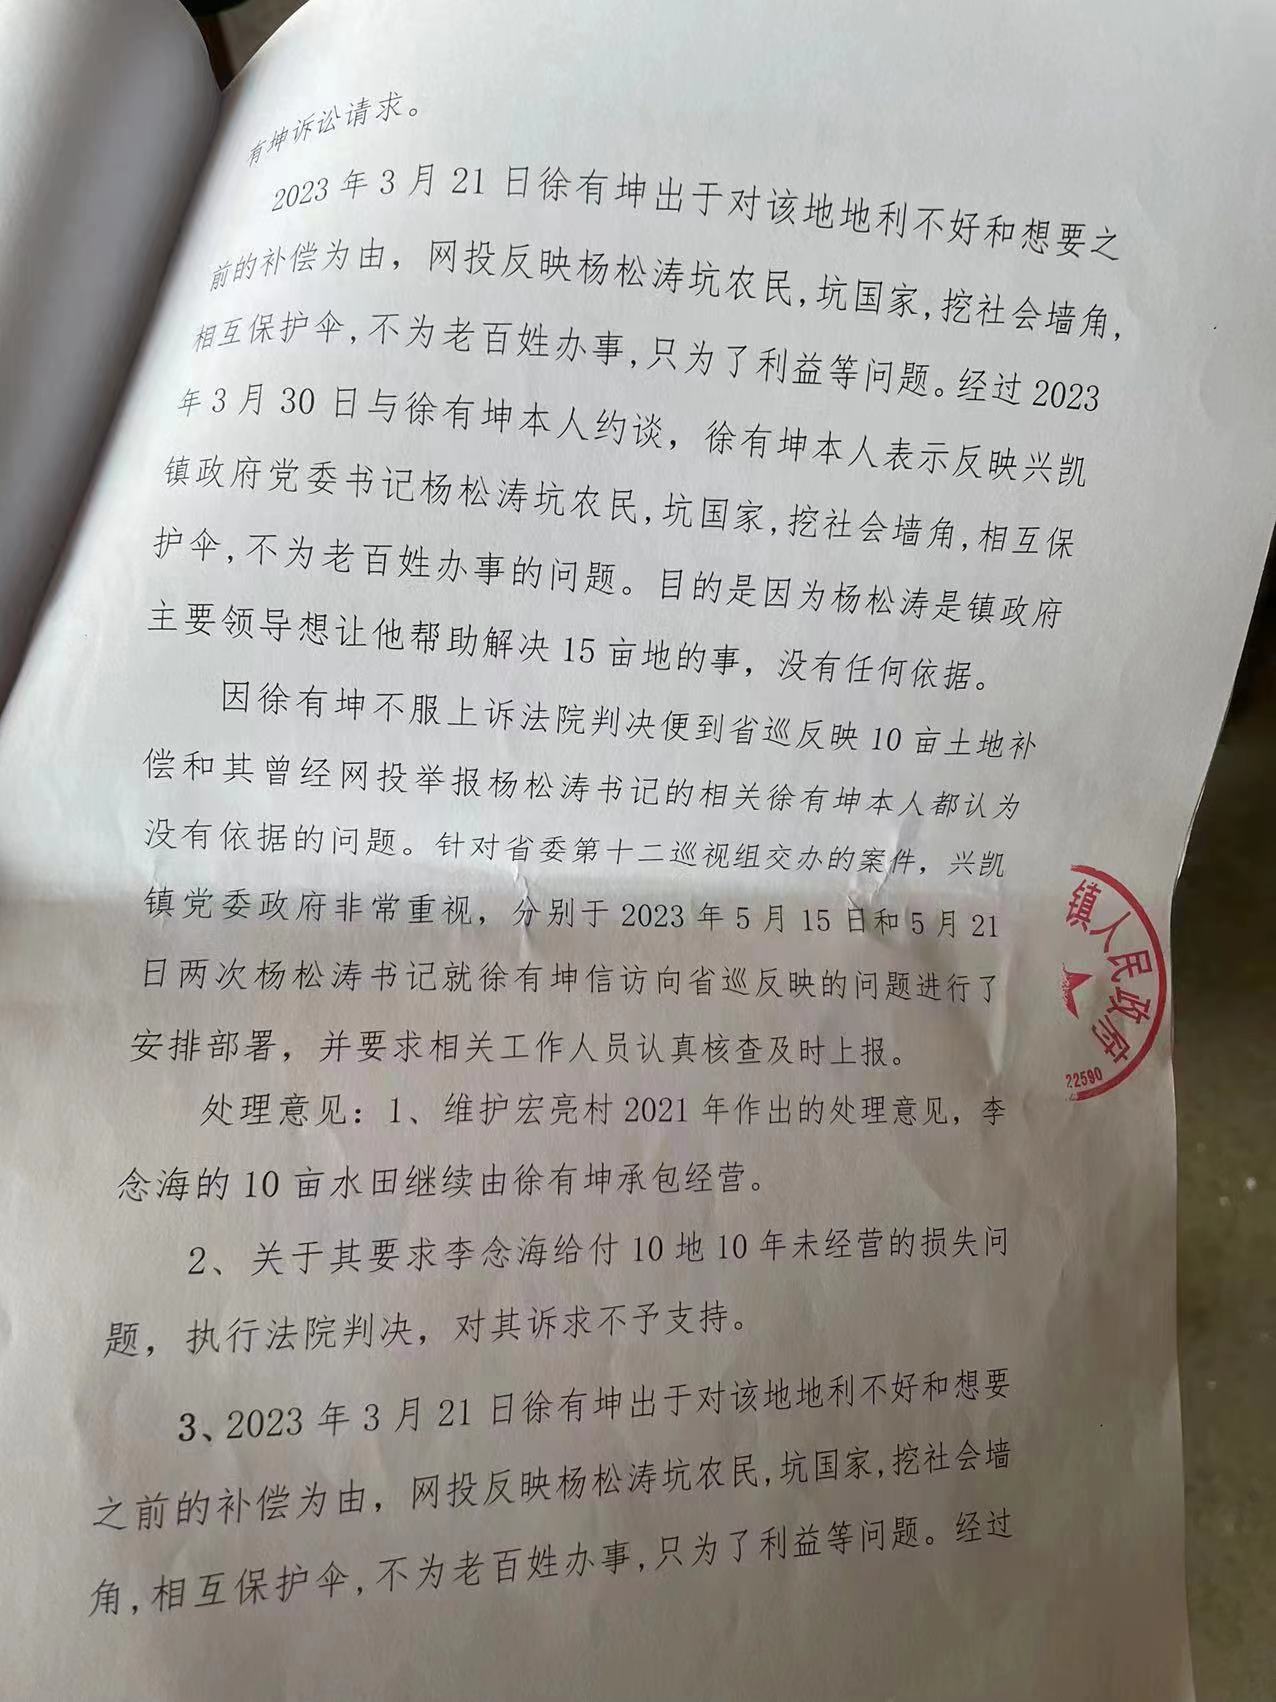 有坤诉讼请求。
2023年3月21日徐有坤出于对该地地利不好和想要之
前的补偿为由，网投反映杨松涛坑农民,坑国家,挖社会墙角,
相互保护伞,不为老百姓办事,只为了利益等问题。经过2023
年3月30日与徐有坤本人约谈，徐有坤本人表示反映兴凯
镇政府党委书记杨松涛坑农民,坑国家,挖社会墙角,相互保
护伞,不为老百姓办事的问题。目的是因为杨松涛是镇政府
主要领导想让他帮助解决15亩地的事，没有任何依据。
因徐有坤不服上诉法院判决便到省巡反映10亩土地补
偿和其曾经网投举报杨松涛书记的相关徐有坤本人都认为
没有依据的问题。针对省委第十二巡视组交办的案件，兴凯
镇党委政府非常重视，分别于2023年5月15日和5月21
日两次杨松涛书记就徐有坤信访向省巡反映的问题进行了
安排部署，并要求相关工作人员认真核查及时上报。
处理意见：1、维护宏亮村2021年作出的处理意见，李
念海的10亩水田继续由徐有坤承包经营。
2、关于其要求李念海给付10地10年未经营的损失问
题，执行法院判决，对其诉求不予支持。
3、2023年3月21日徐有坤出于对该地地利不好和想要
之前的补偿为由，网投反映杨松涛坑农民,坑国家,挖社会墙
角,相互保护伞,不为老百姓办事,只为了利益等问题。经过
镇人民政府
22590